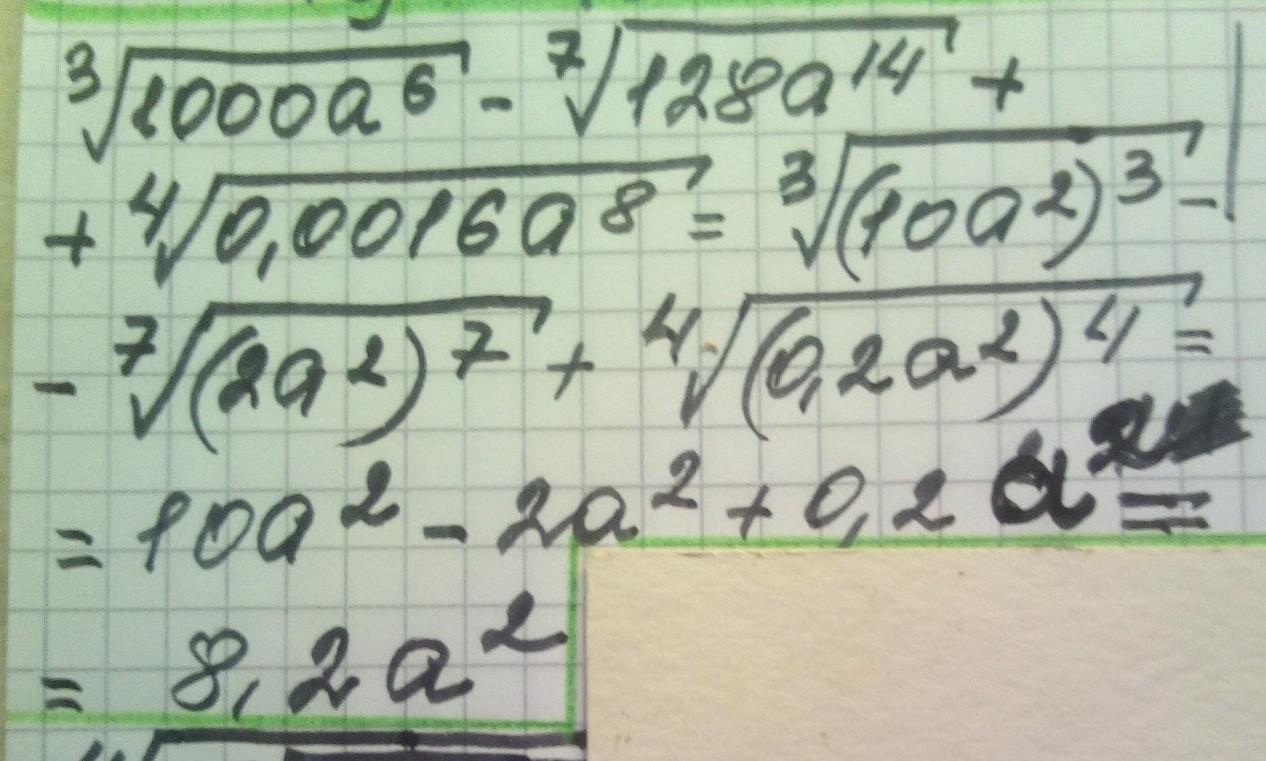 ³√1000a⁶ - ⁷√128a¹⁴ +
+ ⁴√0,0016a⁸ = ³√(10a²)³ -
- ⁷√(2a²)⁷ + ⁴√(0,2a²)⁴ =
= 10a² - 2a² + 0,2a² =
= 8,2a²